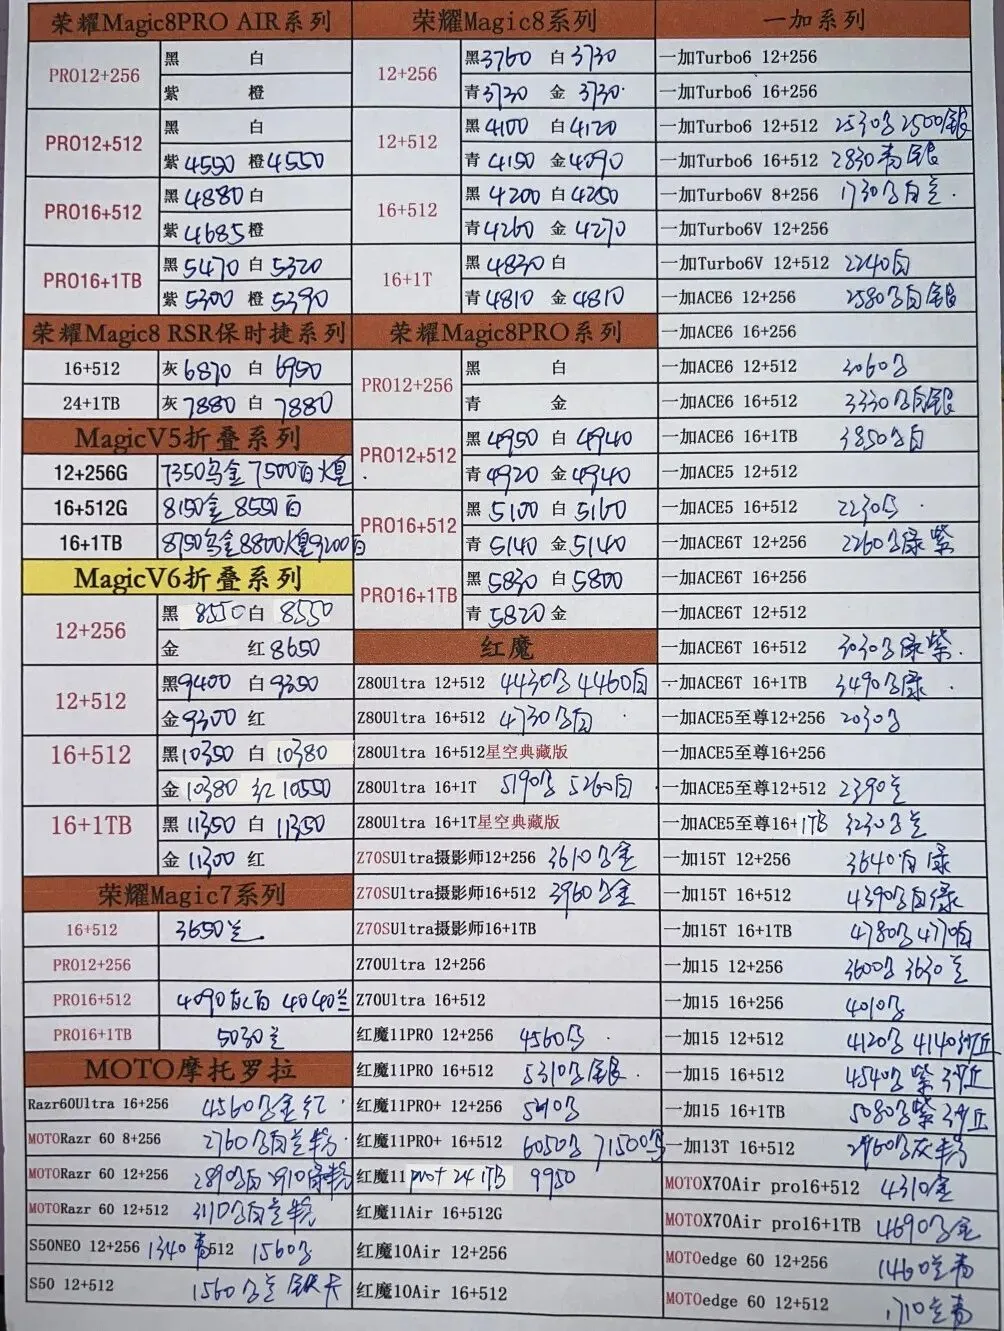 荣耀Magic8PRO AIR系列
PRO12+256
黑 白
紫 橙
PRO12+512
黑 白
紫4550 橙4550
PRO16+512
黑4880 白
紫4685 橙
PRO16+1TB
黑5470 白5320
紫5300 橙5390
荣耀Magic8 RSR保时捷系列
16+512 灰6870 白6950
24+1TB 灰7880 白7880
MagicV5折叠系列
12+256G 7350乌金 7500白
16+512G 8150金 8550白
16+1TB 8750乌金 8800 9200白
MagicV6折叠系列
12+256
黑8550 白8550
金 红8650
12+512
黑9400 白9350
金9300 红
16+512
黑10350 白10380
金10380 红10550
16+1TB
黑11350 白11350
金11300 红
荣耀Magic7系列
16+512 3650兰
PRO12+256
PRO16+512 4090灰白 4040兰
PRO16+1TB 5030兰
MOTO摩托罗拉
Razr60Ultra 16+256 4560 金红
MOTORazr 60 8+256 2760 白兰粉
MOTORazr 60 12+256 2890 白 2910绿粉
MOTORazr 60 12+512 3110 白兰粉
S50NEO 12+256 1340青 512 1560
S50 12+512 1560 兰 银
荣耀Magic8系列
12+256
黑3760 白3730
青3730 金3730
12+512
黑4100 白4120
青4150 金4090
16+512
黑4200 白4250
青4260 金4270
16+1T
黑4830 白
青4810 金4810
荣耀Magic8PRO系列
PRO12+256
黑 白
青 金
PRO12+512
黑4950 白4940
青4920 金4940
PRO16+512
黑5100 白5160
青5140 金5140
PRO16+1TB
黑5830 白5800
青5820 金
红魔
Z80Ultra 12+512 4430 4460白
Z80Ultra 16+512 4730 白
Z80Ultra 16+512星空典藏版
Z80Ultra 16+1T 5190 5260白
Z80Ultra 16+1T星空典藏版
Z70SUltra摄影师12+256 3610 金
Z70SUltra摄影师16+512 3960 金
Z70SUltra摄影师16+1TB
Z70Ultra 12+256
Z70Ultra 16+512
红魔11PRO 12+256 4560
红魔11PRO 16+512 5310 银
红魔11PRO+ 12+256
红魔11PRO+ 16+512 6050
红魔11 pro+ 24 1TB 9950
红魔11Air 16+512G
红魔10Air 12+256
红魔10Air 16+512
一加系列
一加Turbo6 12+256
一加Turbo6 16+256
一加Turbo6 12+512 2530 2500银
一加Turbo6 16+512 2830青银
一加Turbo6V 8+256 1730 白兰
一加Turbo6V 12+256
一加Turbo6V 12+512 2240白
一加ACE6 12+256 2580 白银
一加ACE6 16+256
一加ACE6 12+512 3060
一加ACE6 16+512 3330 白银
一加ACE6 16+1TB 3850 白
一加ACE5 12+512
一加ACE5 16+512 2230
一加ACE6T 12+256 2260 绿紫
一加ACE6T 16+256
一加ACE6T 12+512
一加ACE6T 16+512 3030 绿紫
一加ACE6T 16+1TB 3490 绿
一加ACE5至尊12+256 2030
一加ACE5至尊16+256
一加ACE5至尊12+512 2390兰
一加ACE5至尊16+1TB 3230 兰
一加15T 12+256 3640白绿
一加15T 16+512 4390 白绿
一加15T 16+1TB 4780 4770白
一加15 12+256 3600 3630兰
一加15 16+256 4010
一加15 12+512 4120 4140沙丘
一加15 16+512 4540 紫沙丘
一加15 16+1TB 5080 紫沙丘
一加13T 16+512 2960 灰粉
MOTOX70Air pro16+512 4310金
MOTOX70Air pro16+1TB 4690 金
MOTOedge 60 12+256 1460兰青
MOTOedge 60 12+512 1710兰青